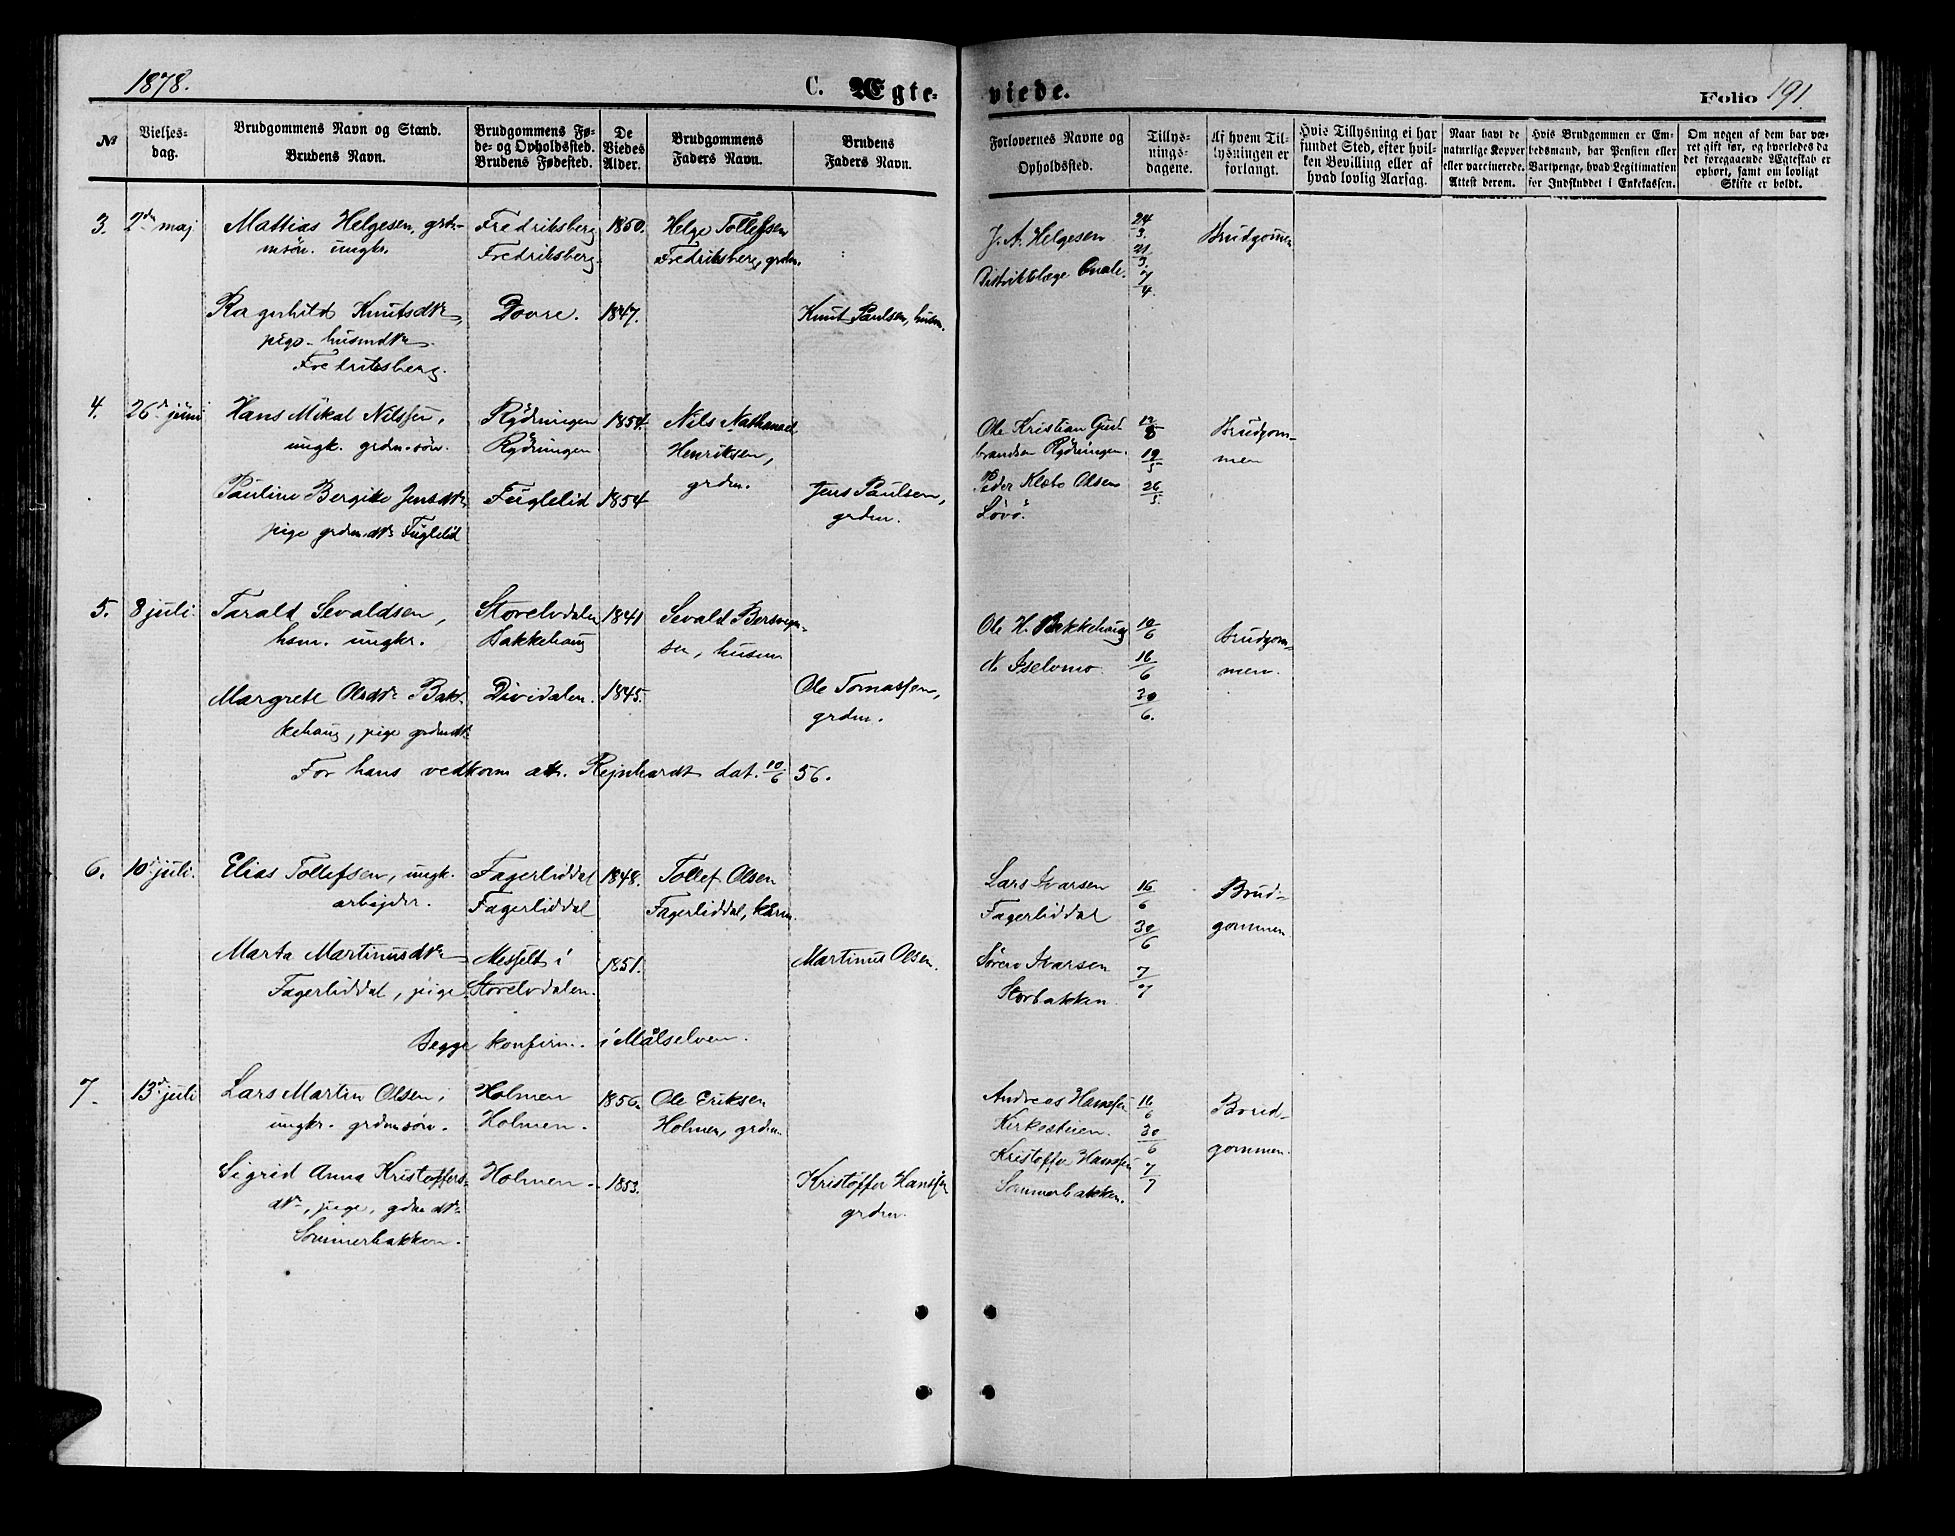 1878.
C. Ægte-
viede.
Folio 191.
№
Vielses-
dag.
Brudgommens Navn og Stand.
Brudens Navn.
Brudgommens Fø-
de- og Opholdssted.
Brudens Fødested.
De
Viedes
Alder.
Brudgommens
Faders Navn.
Brudens
Faders Navn.
Forlovernes Navne og
Opholdssted.
Tillys-
nings-
dagene.
Af hvem Til-
lysningen er
forlangt.
Hvis Tillysning ei har
fundet Sted, efter hvil-
ken Bevilling eller af
hvad lovlig Aarsag.
Naar havt de
naturlige Kopper
eller vaccinerede.
Attest derom.
Hvis Brudgommen er Em-
bedsmand, har Pension eller
Vartpenge, hvad Legitimation
for Indskuddet i Enkekassen.
Om nogen af dem har væ-
ret gift før, og hvorledes da
det foregaaende Ægteskab er
ophørt, samt om lovligt
Skifte er holdt.
3. 2den maj Mattias Helgesen, grdm- Fredriksberg 1850. Helge Tollefsen
msön. ungkr. Fredriksberg Fredriksberg, grdm.
J. A. Helgesen 24/3. Brudgommen
Distriktslæge 31/3. 7/4.
Ragnhild Knutsdtr, Dovre. 1847. Knut Paulsen, husm.
pige husmdtr
Fredriksberg.
4. 26d juni Hans Mikal Nilssen, Rydningen 1854. Nils Natanael
ungk. grdm.sön. Rydningen Henriksen,
grdm.
Ole Kristian Gud- 12/5 Brudgom-
brandsen Rydningen. 19/5 men
Peder Klæbo Olsen 26/5.
Lövö.
Pauline Bergitte Jensdtr Fuglelid 1854 Jens Paulsen,
pige grdm.dtr Fuglelid grdm.
5. 8 juli. Tarald Sevaldsen, Storelvdalen 1841 Sevald Bersven-
hsm. ungkr. Bakkehaug sen, husm
Ole H. Bakkehaug 10/6 Brudgom-
16/6 men.
30/6.
Margrete Olsdtr Bak- Dividalen. 1845. Ole Tomassen,
kehaug, pige grdmdtr grdm.
For hans vedkom att. Rejnhardt dat. 10/6 56.
6. 10d juli. Elias Tollefsen, ungk. Fagerliddal 1848. Tollef Olsen
arbejder. Fagerliddal Fagerliddal,
Lars Ivarsen 16/6 Brud-
Fagerliddal 30/6 gommen
Sören Ivarsen 7/7
Storbakken.
Marta Martinusdtr Messelt i 1851. Martinus Olsen.
Fagerliddal, pige Storelvdalen.
Begge konfirm. i Målselven.
7. 13d juli Lars Martin Olsen, Holmen 1856. Ole Eriksen
ungkr. grdmsön. Holmen. Holmen, grdm.
Andreas Hanssen 16/6 Brud-
30/6 gommen.
Kristoffer Hanssen 7/7
Sommerbakken.
Sigrid Anna Kristoffers- Holmen. 1853. Kristoffer Hanssen
dtr, pige, gdm.dtr grdm.
Sommerbakken.